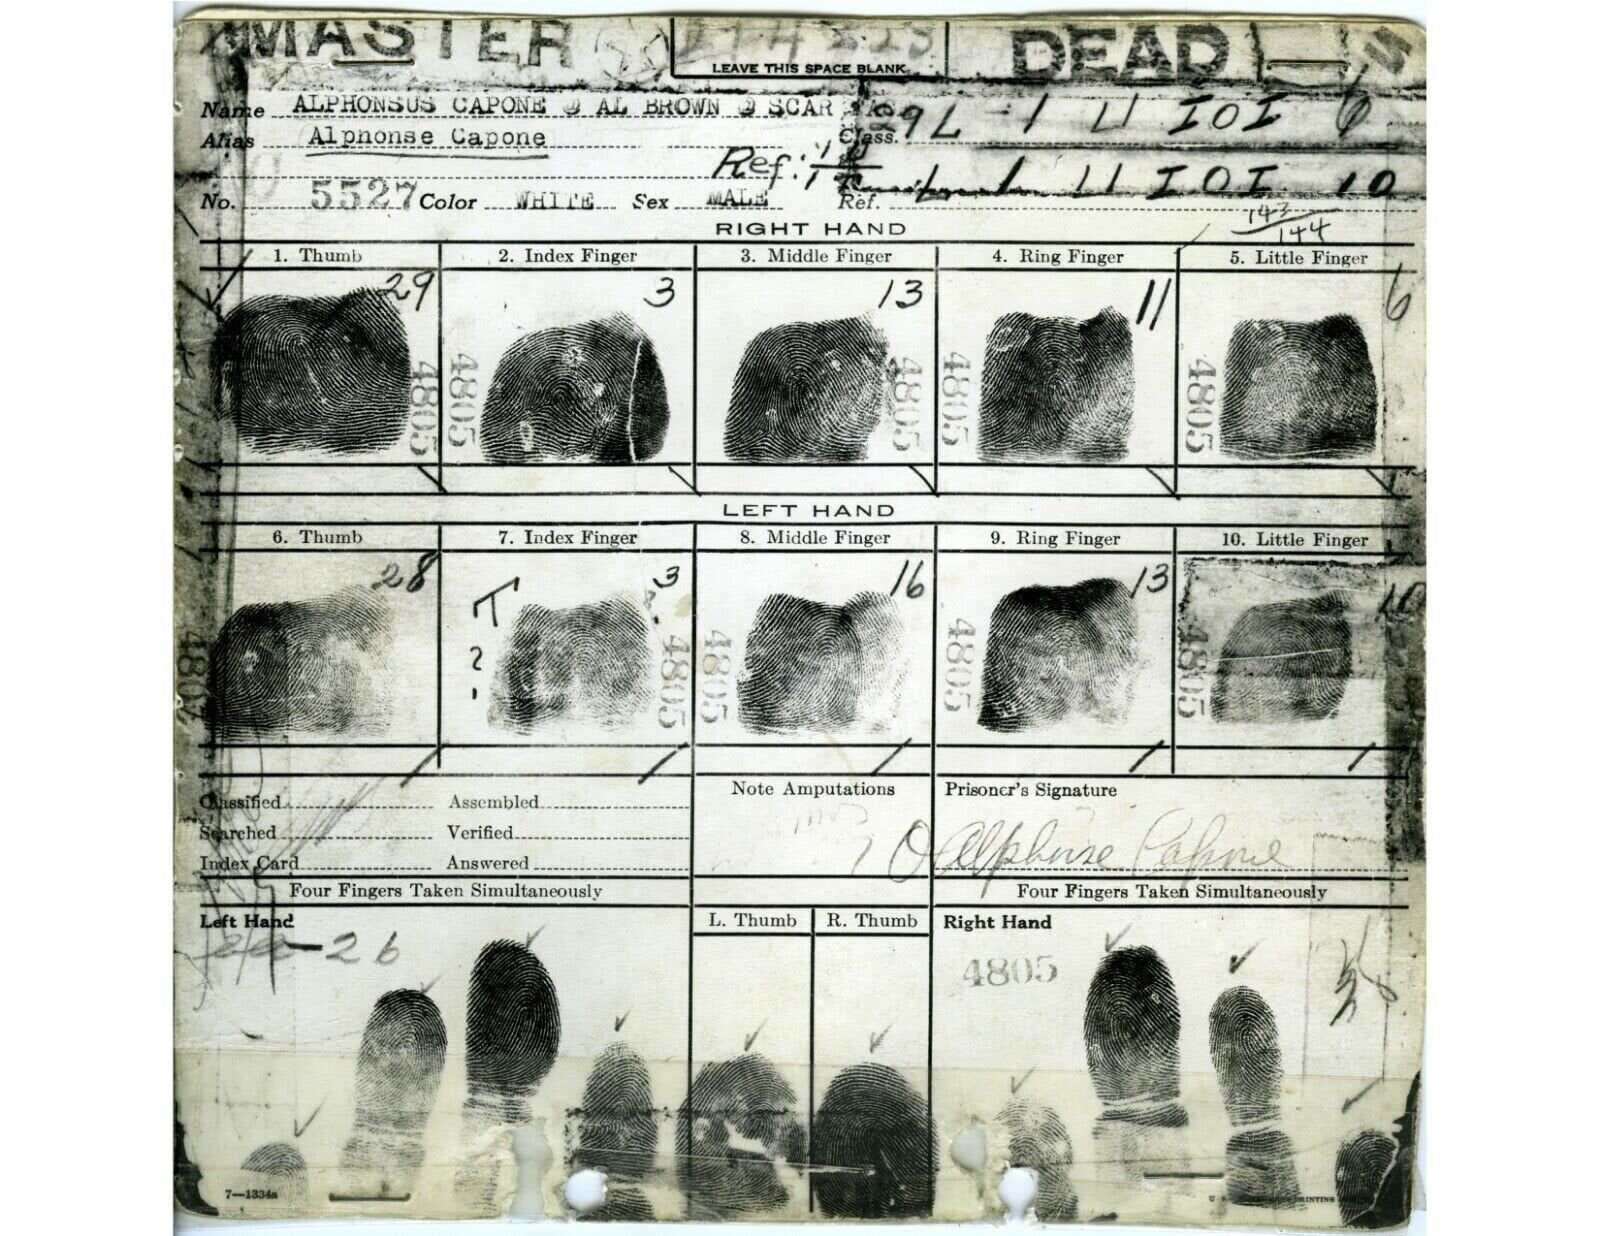 MASTER DEAD
LEAVE THIS SPACE BLANK
Name ALPHONSUS CAPONE @ AL BROWN @ SCAR
Class. 29 L 1 U IOI 6
Alias Alphonse Capone
Ref:
L 1 U IOI 10
No. 5527 Color WHITE Sex MALE Ref.
143/144
RIGHT HAND
1. Thumb 2. Index Finger 3. Middle Finger 4. Ring Finger 5. Little Finger
29 3 13 11 6
4805 4805 4805 4805 4805
LEFT HAND
6. Thumb 7. Index Finger 8. Middle Finger 9. Ring Finger 10. Little Finger
28 T 3 16 13 10
?
4805 4805 4805 4805 4805
Classified Assembled Note Amputations Prisoner's Signature
Searched Verified
Index Card Answered Alphonse Capone
Four Fingers Taken Simultaneously Four Fingers Taken Simultaneously
Left Hand L. Thumb R. Thumb Right Hand
26 4805
7—1334a PRINTING